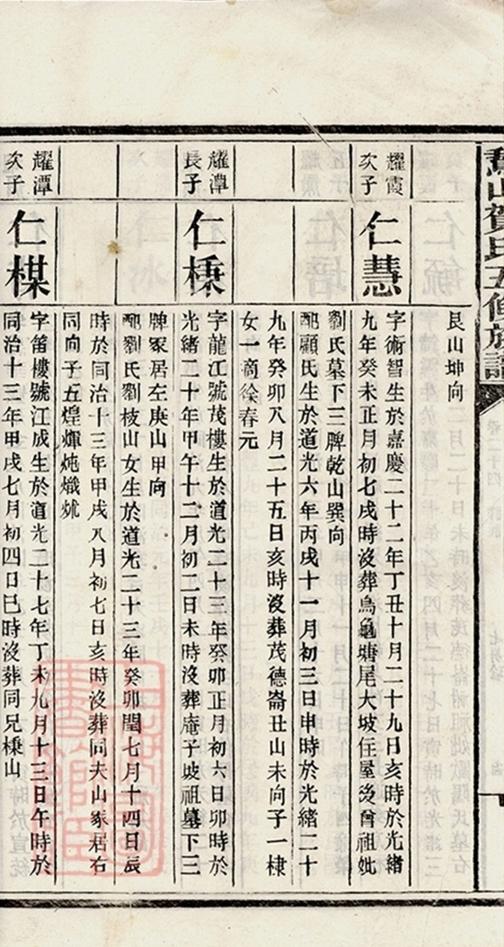 山賀氏五修族譜
艮山坤向
耀霞
次子
仁慧
字術智生於嘉慶二十二年丁丑十月二十九日亥時於光緒
九年癸未正月初七戌時沒葬烏龜塘尾大坡住屋後曾祖妣
劉氏墓下三牌乾山巽向
配顧氏生於道光六年丙戌十一月初三日申時於光緒二十
九年癸卯八月二十五日亥時沒葬茂德崙丑山未向子一棟
女一啇徐春元
耀潭
長子
仁㮚
字龍江號茂樓生於道光二十三年癸卯正月初六日卯時於
光緒二十年甲午十二月初二日未時沒葬庵子坡祖墓下三
牌冢居左庚山甲向
配劉氏劉枝山女生於道光二十三年癸卯閏七月十四日辰
時於同治十三年甲戌八月初七日亥時沒葬同夫山冢居右
同向子五煌輝炖熾炢
耀潭
次子
仁楳
字笛樓號江成生於道光二十七年丁未九月十三日午時於
同治十三年甲戌七月初四日巳時沒葬同兄山